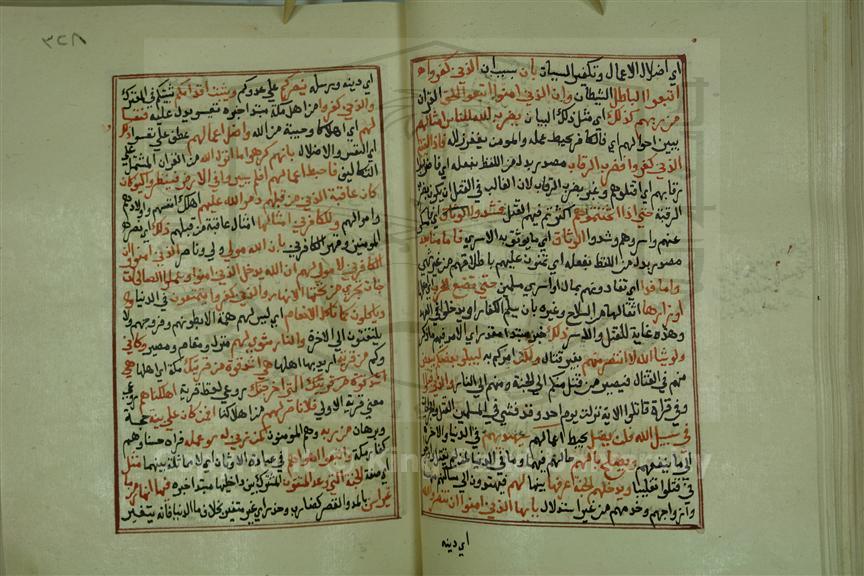 اي اضلال الاعمال وتكفير السيات بان سبب ان الذين كفروا
اتبعوا الباطل الشيطان وان الذين امنوا اتبعوا الحق القران
من ربهم كذلك اي مثل ذلك البيان يضرب الله للناس امثالهم
يبين احوالهم اي فالكافر يحبط عمله والمومن يغفر زلله فاذا لقيتم
الذين كفروا فضرب الرقاب مصدر بدل من اللفظ بفعله اي فاضربوا
رقابهم اي اقتلوهم وعبر بضرب الرقاب لان الغالب في القتل ان يكون بضرب
الرقبة حتي اذا اثخنتموهم اكثرتم فيهم القتل فشدوا الوثاق اي فامسكوا
عنهم واسروهم وشدوا الوثاق اي ما يوثق به الاسري فاما منا بعد
مصدر بدل من اللفظ بفعله اي تمنون عليهم باطلاقهم من غير شي
واما فدا اي تفادونهم بمال او اسري مسلمين حتي تضع الحرب
اوزارها اثقالها من السلاح وغيره بان يسلم الكفار او يدخلوا في العهد
وهذه غاية للقتل والاسر ذلك خبر مبتدا مقدر اي الامر فيهم ما ذكر
ولو يشا الله لانتصر منهم بغير قتال ولكن امركم به ليبلو بعضكم ببعض
منهم في القتال فيصير من قتل منكم الي الجنة ومنهم الي النار والذين قتلوا
وفي قراة قاتلوا الاية نزلت يوم احد وقد فشي في المسلمين القتل
في سبيل الله فلن يضل يحبط اعمالهم سيهديهم في الدنيا والاخرة
الي ما ينفعهم ويصلح بالهم حالهم فيهما وما في الدنيا لمن لم يقتل
في قتلوا تغليبا ويدخلهم الجنة عرفها بينها لهم فيهتدون الي مساكنهم
وازواجهم وخدمهم من غير استدلال يايها الذين امنوا ان تنصروا الله
اي دينه
٣٢٨
اي دينه ورسله ينصركم علي عدوكم ويثبت اقدامكم يثبتكم في المعترك
والذين كفروا من اهل مكة مبتدا خبره تعسوا يدل عليه فتعسا
لهم اي هلاكا وخيبة من الله واضل اعمالهم عطف علي تعسوا ذلك
اي التعس والاضلال بانهم كرهوا ما انزل الله من القران المشتمل علي
التكاليف فاحبط اعمالهم افلم يسيروا في الارض فينظروا كيف كان
عاقبة الذين من قبلهم دمر الله عليهم اهلك انفسهم واولادهم
واموالهم وللكافرين امثالها امثال عاقبة من قبلهم ذلك اي نصر
المومنين وقهر الكافرين بان الله مولي ولي وناصر الذين امنوا وان
الكافرين لا مولي لهم ان الله يدخل الذين امنوا وعملوا الصالحات
جنات تجري من تحتها الانهار والذين كفروا يتمتعون في الدنيا
وياكلون كما تاكل الانعام اي ليس لهم همة الا بطونهم وفروجهم ولا
يلتفتون الي الاخرة والنار مثوي لهم منزل ومقام ومصير وكاين
وكم من قرية اريد بها اهلها هي اشد قوة من قريتك مكة اي اهلها
التي اخرجتك روعي لفظ قرية اهلكناهم روعي
معني قرية الاولي فلا ناصر لهم من اهلاكنا افمن كان علي بينة حجة
وبرهان من ربه وهم المومنون كمن زين له سو عمله فراه حسنا وهم
كفار مكة واتبعوا اهواهم في عبادة الاوثان اي لا مماثلة بينهما مثل
اي صفة الجنة التي وعد المتقون المشتركة بين داخليها مبتدا خبره فيها انهار من ما
غير اسن بالمد والقصر كضارب وحذر اي غير متغير بخلاف ما الدنيا فانه يتغير